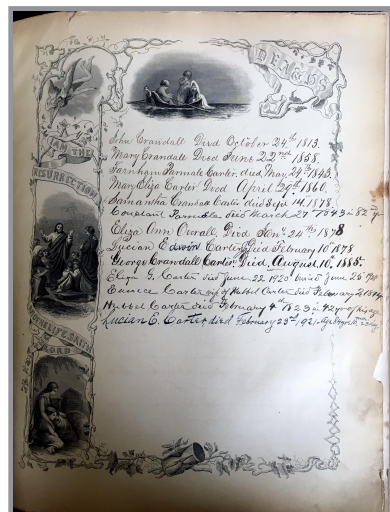 DEATHS
I AM THE
RESURRECTION
AND THE LIFE SAITH
THE LORD
John Crandall Died October 24th 1813.
Mary Crandall Died June 22nd 1858.
Farnham Parmale Carter, died May 29th 1845.
Mary Eliza Carter Died April 29th 1860.
Samantha Crandall Carter died Sept 14. 1878.
Parmale died March 27 1843 in 82 yr
Eliza Ann Died Jan. 24th 1878
Lucian Edwin Carter, Died February 10 1878
George Crandall Carter, Died, August, 10th, 1885.
G. Carter died June 22 1920 buried June 25 1920
Eunice Carter wife of Hubbel Carter died February 2 1814
Hubbel Carter died February 4th 1823 in 42 yr of his age
Lucian E. Carter died February 23rd, 1921,